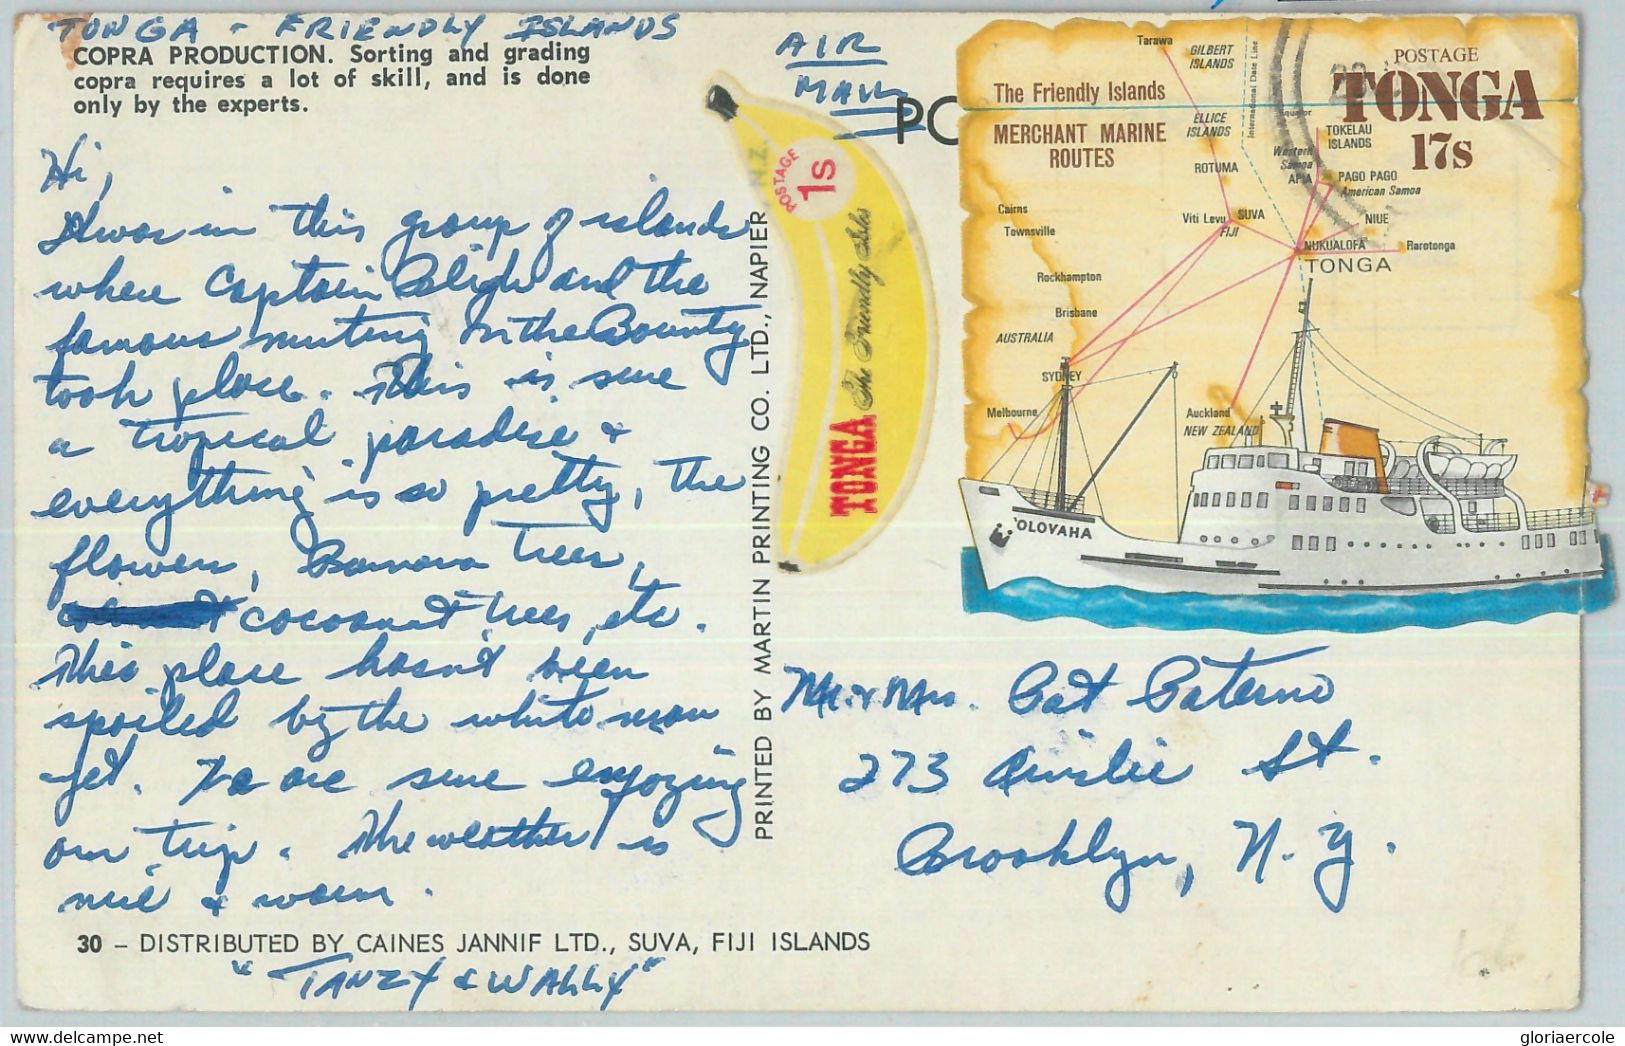 TONGA - FRIENDLY ISLANDS
COPRA PRODUCTION. Sorting and grading
copra requires a lot of skill, and is done
only by the experts.
Hi,
I was in this group of islands
where Captain Bligh and the
famous mutiny on the Bounty
took place. This is sure
a tropical paradise &
everything is so pretty, the
flowers, Banana trees,
cocoanut trees, etc.
This place hasn't been
spoiled by the white man
yet. We are sure enjoying
our trip. The weather is
nice & warm.
30 – DISTRIBUTED BY CAINES JANNIF LTD., SUVA, FIJI ISLANDS
"TANZY & WALLY"
PRINTED BY MARTIN PRINTING CO. LTD., NAPIER, N.Z.
AIR
MAIL
PO
POSTAGE
1s
The Friendly Isles
TONGA
POSTAGE
TONGA
17s
The Friendly Islands
MERCHANT MARINE
ROUTES
Tarawa
GILBERT
ISLANDS
International Date Line
Equator
ELLICE
ISLANDS
TOKELAU
ISLANDS
ROTUMA
Western
Samoa
APIA
PAGO PAGO
American Samoa
Cairns
Townsville
Viti Levu
SUVA
FIJI
NIUE
NUKUALOFA
Rarotonga
TONGA
Rockhampton
Brisbane
AUSTRALIA
SYDNEY
Melbourne
Auckland
NEW ZEALAND
'OLOVAHA
Mr. & Mrs. Pat Paterno
273 Ainslie St.
Brooklyn, N.Y.
gloriaercole